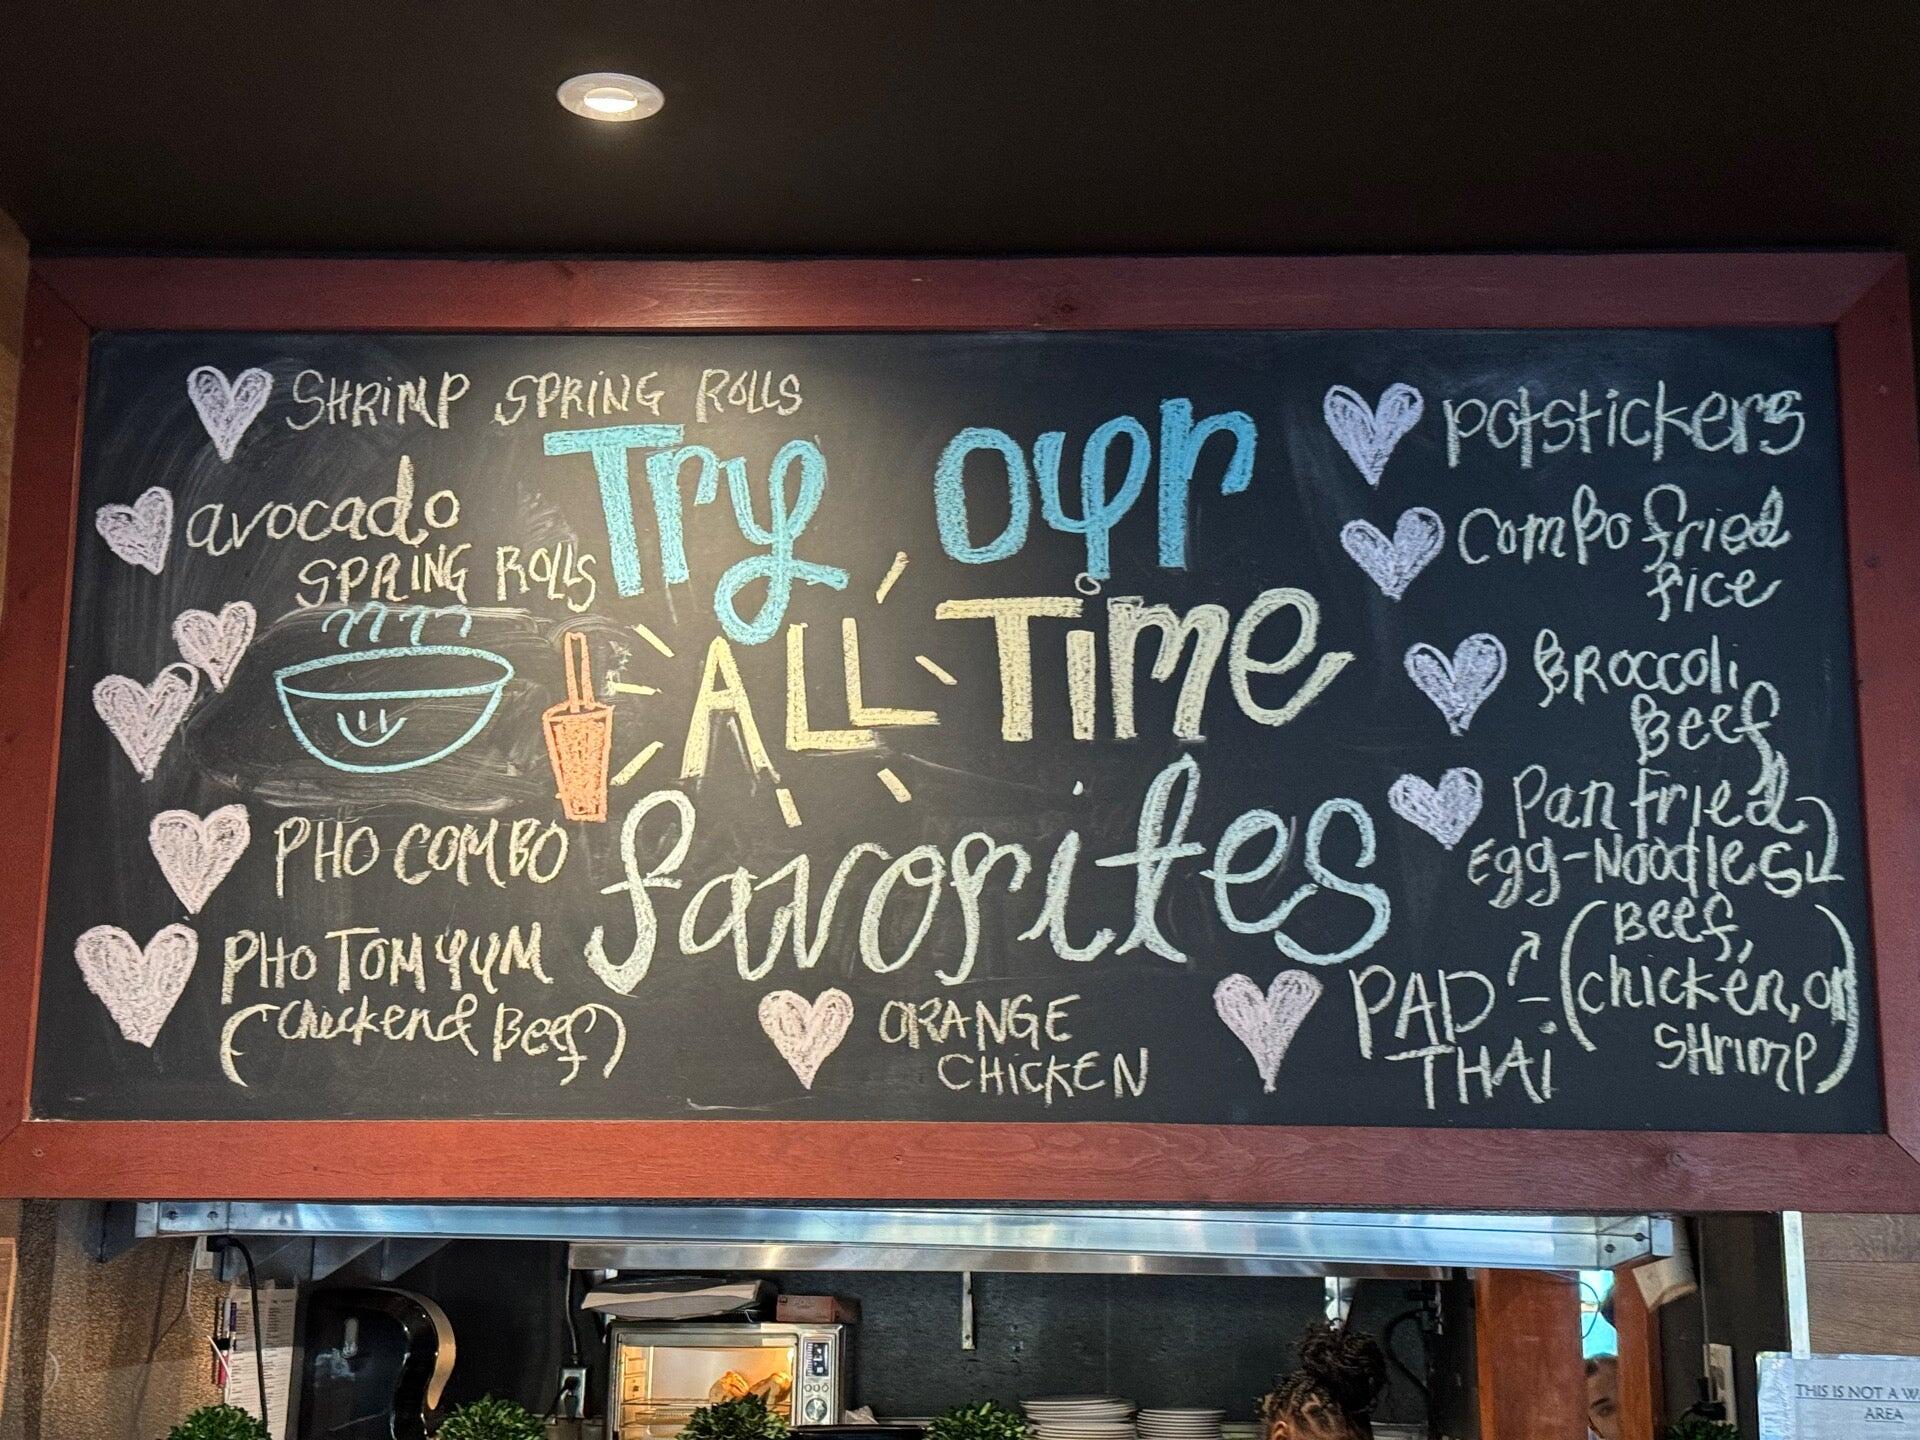 SHRIMP SPRING ROLLS
avocado
SPRING ROLLS
PHO COMBO
PHO TOM YUM
(Chicken & Beef)
Try our
ALL Time
favorites
ORANGE
CHICKEN
Potstickers
Combo fried
rice
Broccoli
Beef
Pan fried
Egg-Noodles
(Beef,
chicken, or
shrimp)
PAD
THAI
THIS IS NOT A W
AREA